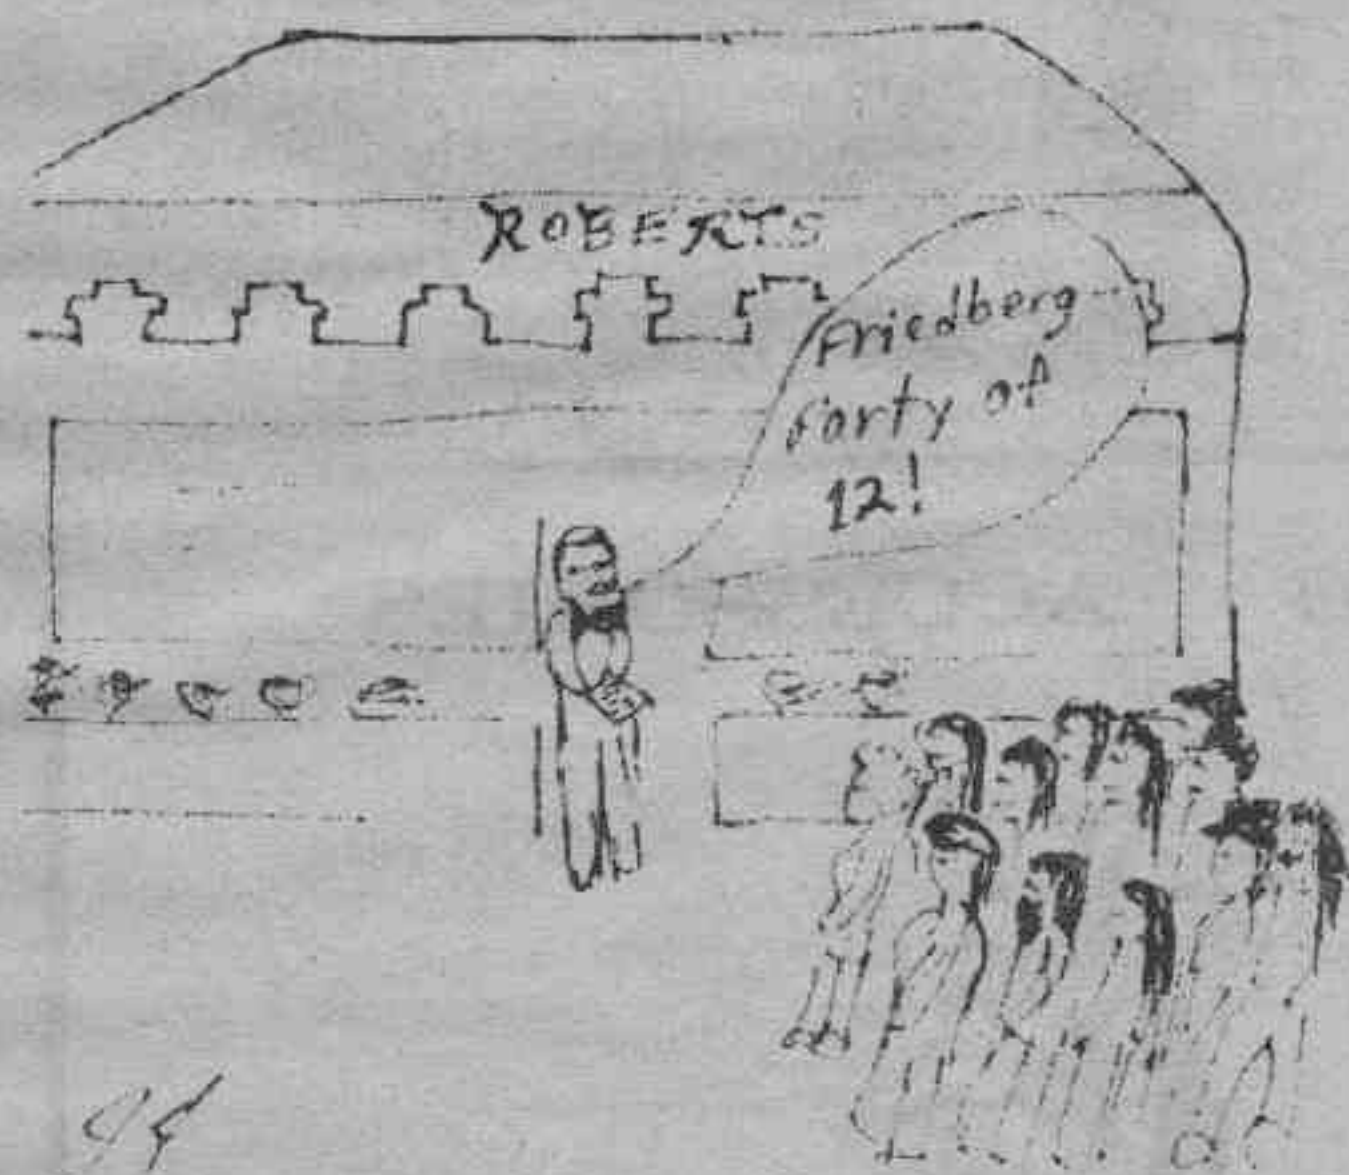 ROBERTS
Friedberg
Party of
12!